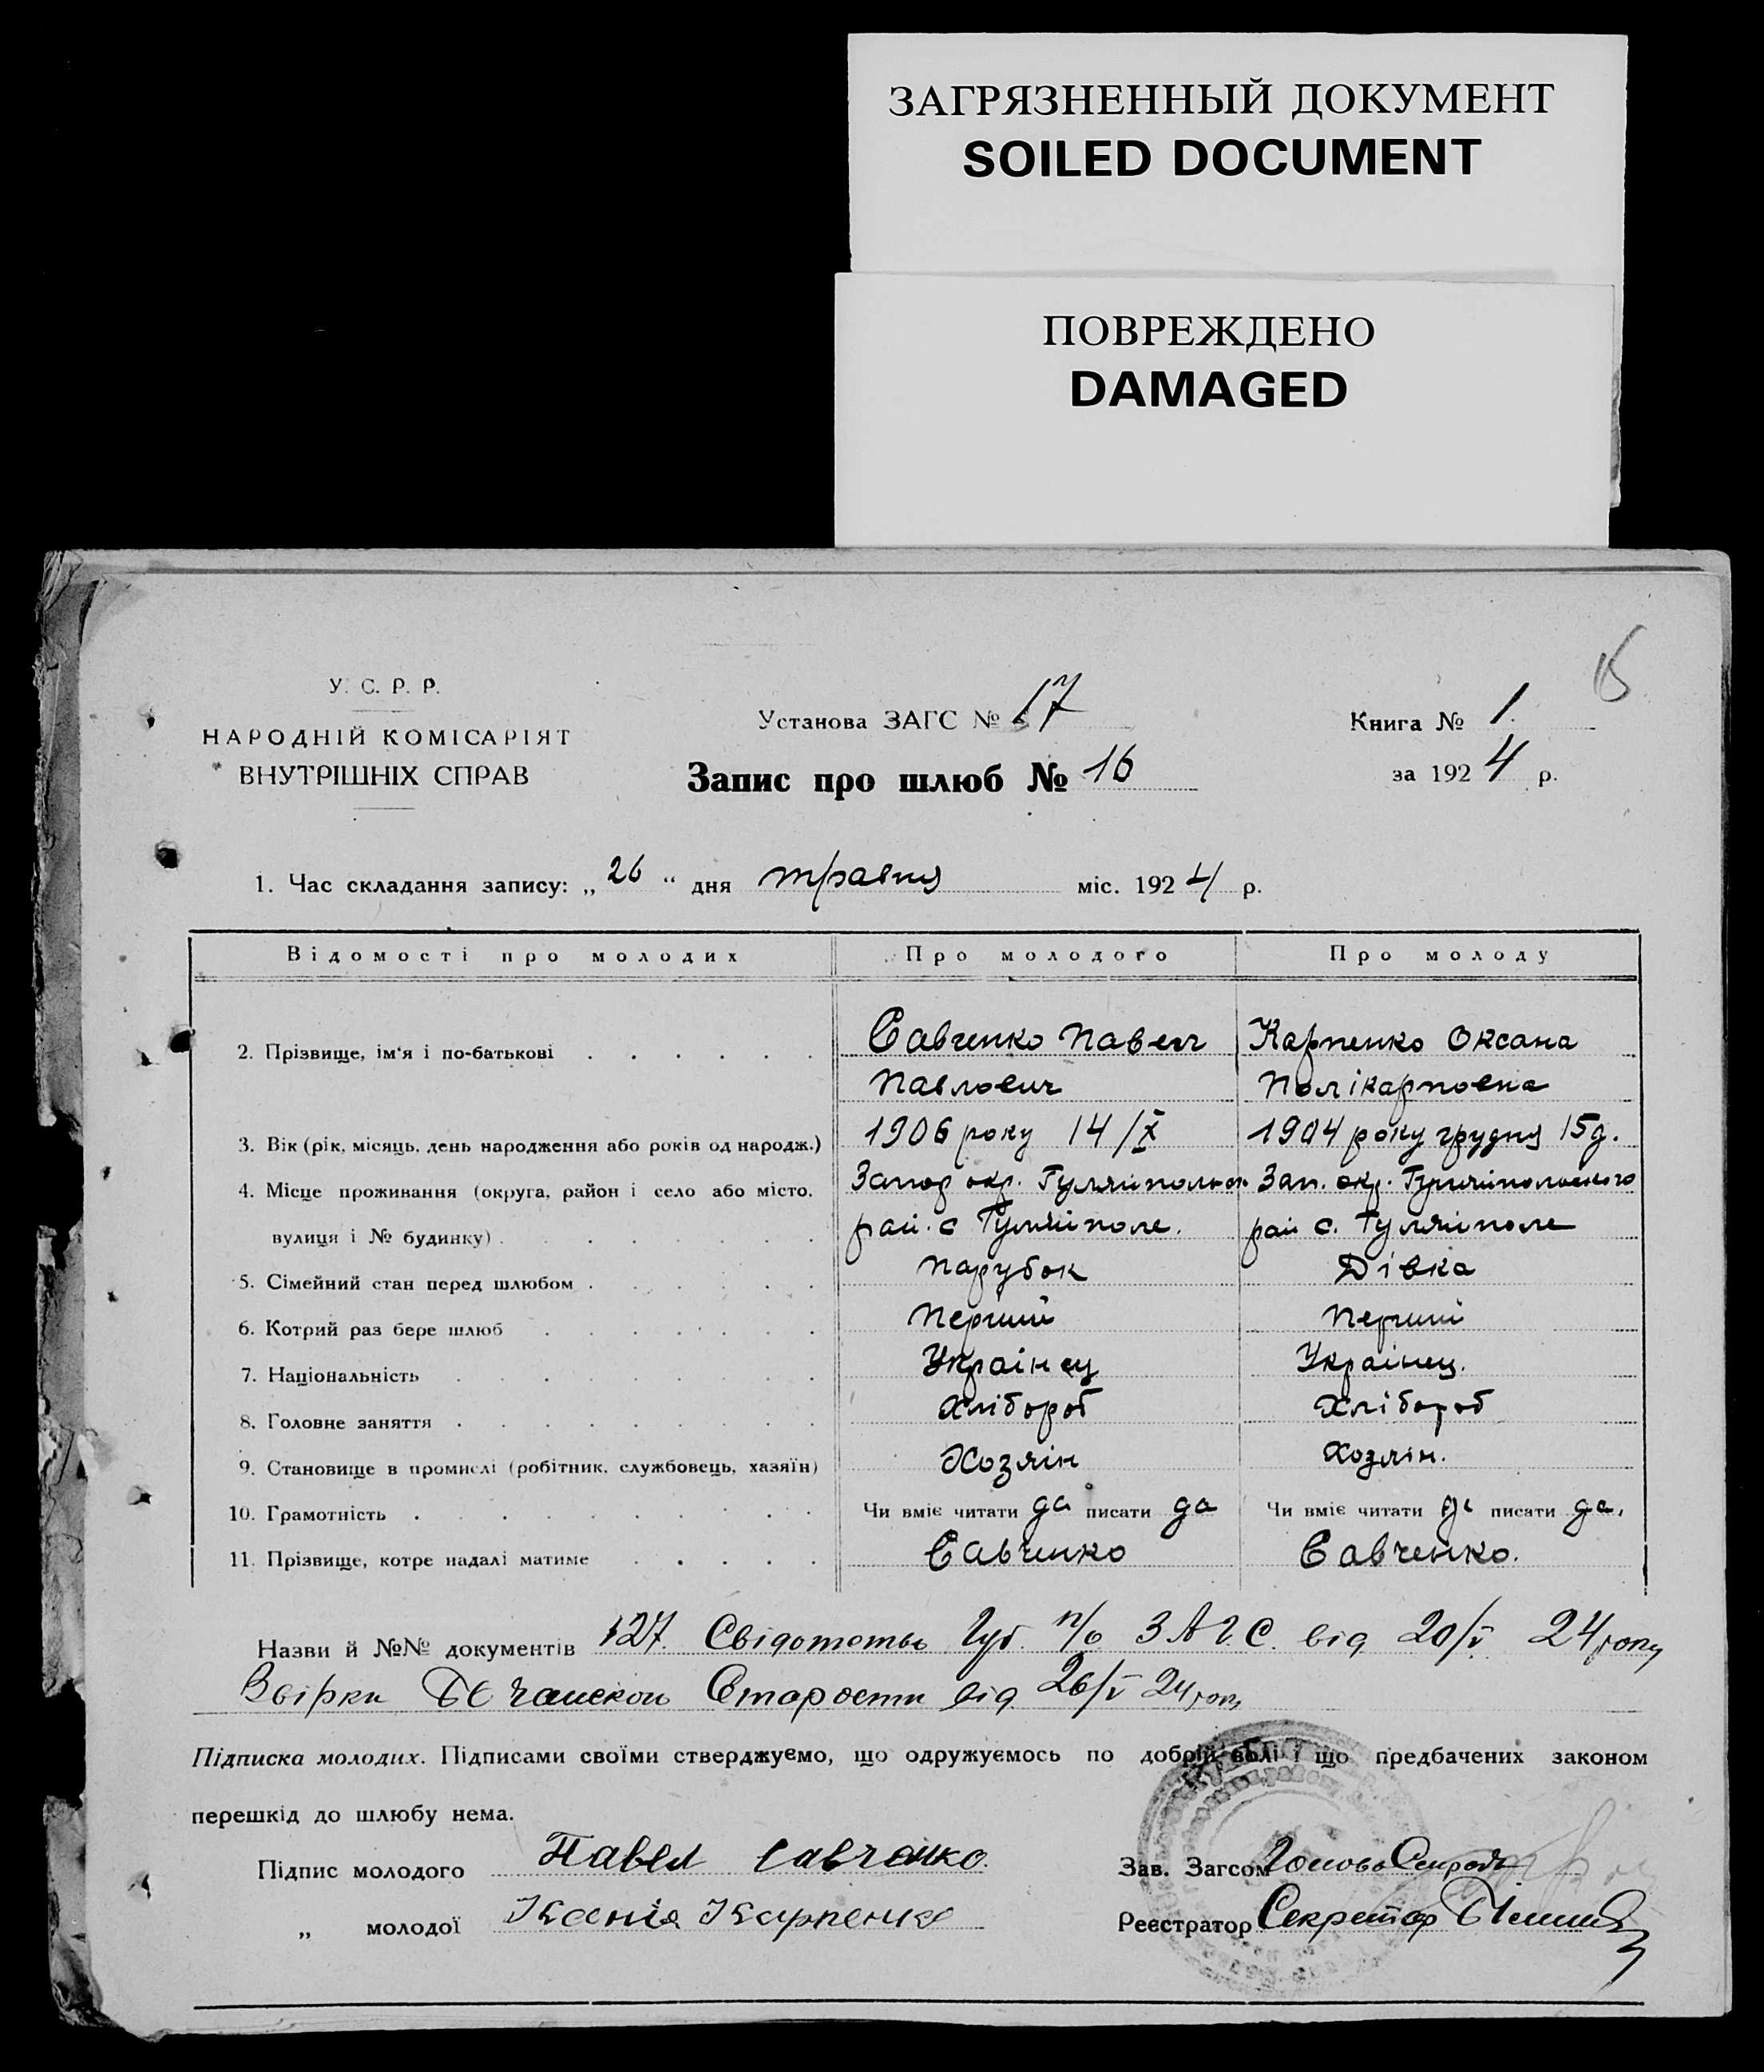 ЗАГРЯЗНЕННЫЙ ДОКУМЕНТ
SOILED DOCUMENT
ПОВРЕЖДЕНО
DAMAGED
У. С. Р. Р.
НАРОДНІЙ КОМІСАРІЯТ
ВНУТРІШНІХ СПРАВ
Установа ЗАГС № 17
Запис про шлюб № 16
Книга № 1.
за 1924 р.
1. Час складання запису: „26“ дня травня міс. 1924 р.
Відомості про молодих Про молодого Про молоду
2. Прізвище, ім'я і по-батькові Савченко Павел Карпенко Оксана
Павлович Полікарповна
3. Вік (рік, місяць, день народження або років од народж.) 1906 року 14/X 1904 року грудня 15 д.
4. Місце проживання (округа, район і село або місто, Запор окр. Зап. окр. Гуляйпольского
вулиця і № будинку) рай. с Гуляйполе. рай с. Гуляйполе
5. Сімейний стан перед шлюбом Парубок Дівка
6. Котрий раз бере шлюб Перший Перший
7. Національність Украінец Украінец.
8. Головне заняття Хлібороб Хлібороб
9. Становище в промислі (робітник, службовець, хазяїн) Хозяін Хозяін.
10. Грамотність Чи вміє читати да писати да Чи вміє читати да писати да.
11. Прізвище, котре надалі матиме Савченко Савченко.
Назви й №№ документів 127. Свідотство Губ. п/о ЗАГС. від 20/V 24 року
від 26/V 24 року
Підписка молодих. Підписами своїми стверджуємо, що одружуємось по добрій волі і що предбачених законом
перешкід до шлюбу нема.
Підпис молодого Павел Савченко.
„ молодої Ксенія Карпенко
Зав. Загсом
Реєстратор Секретар